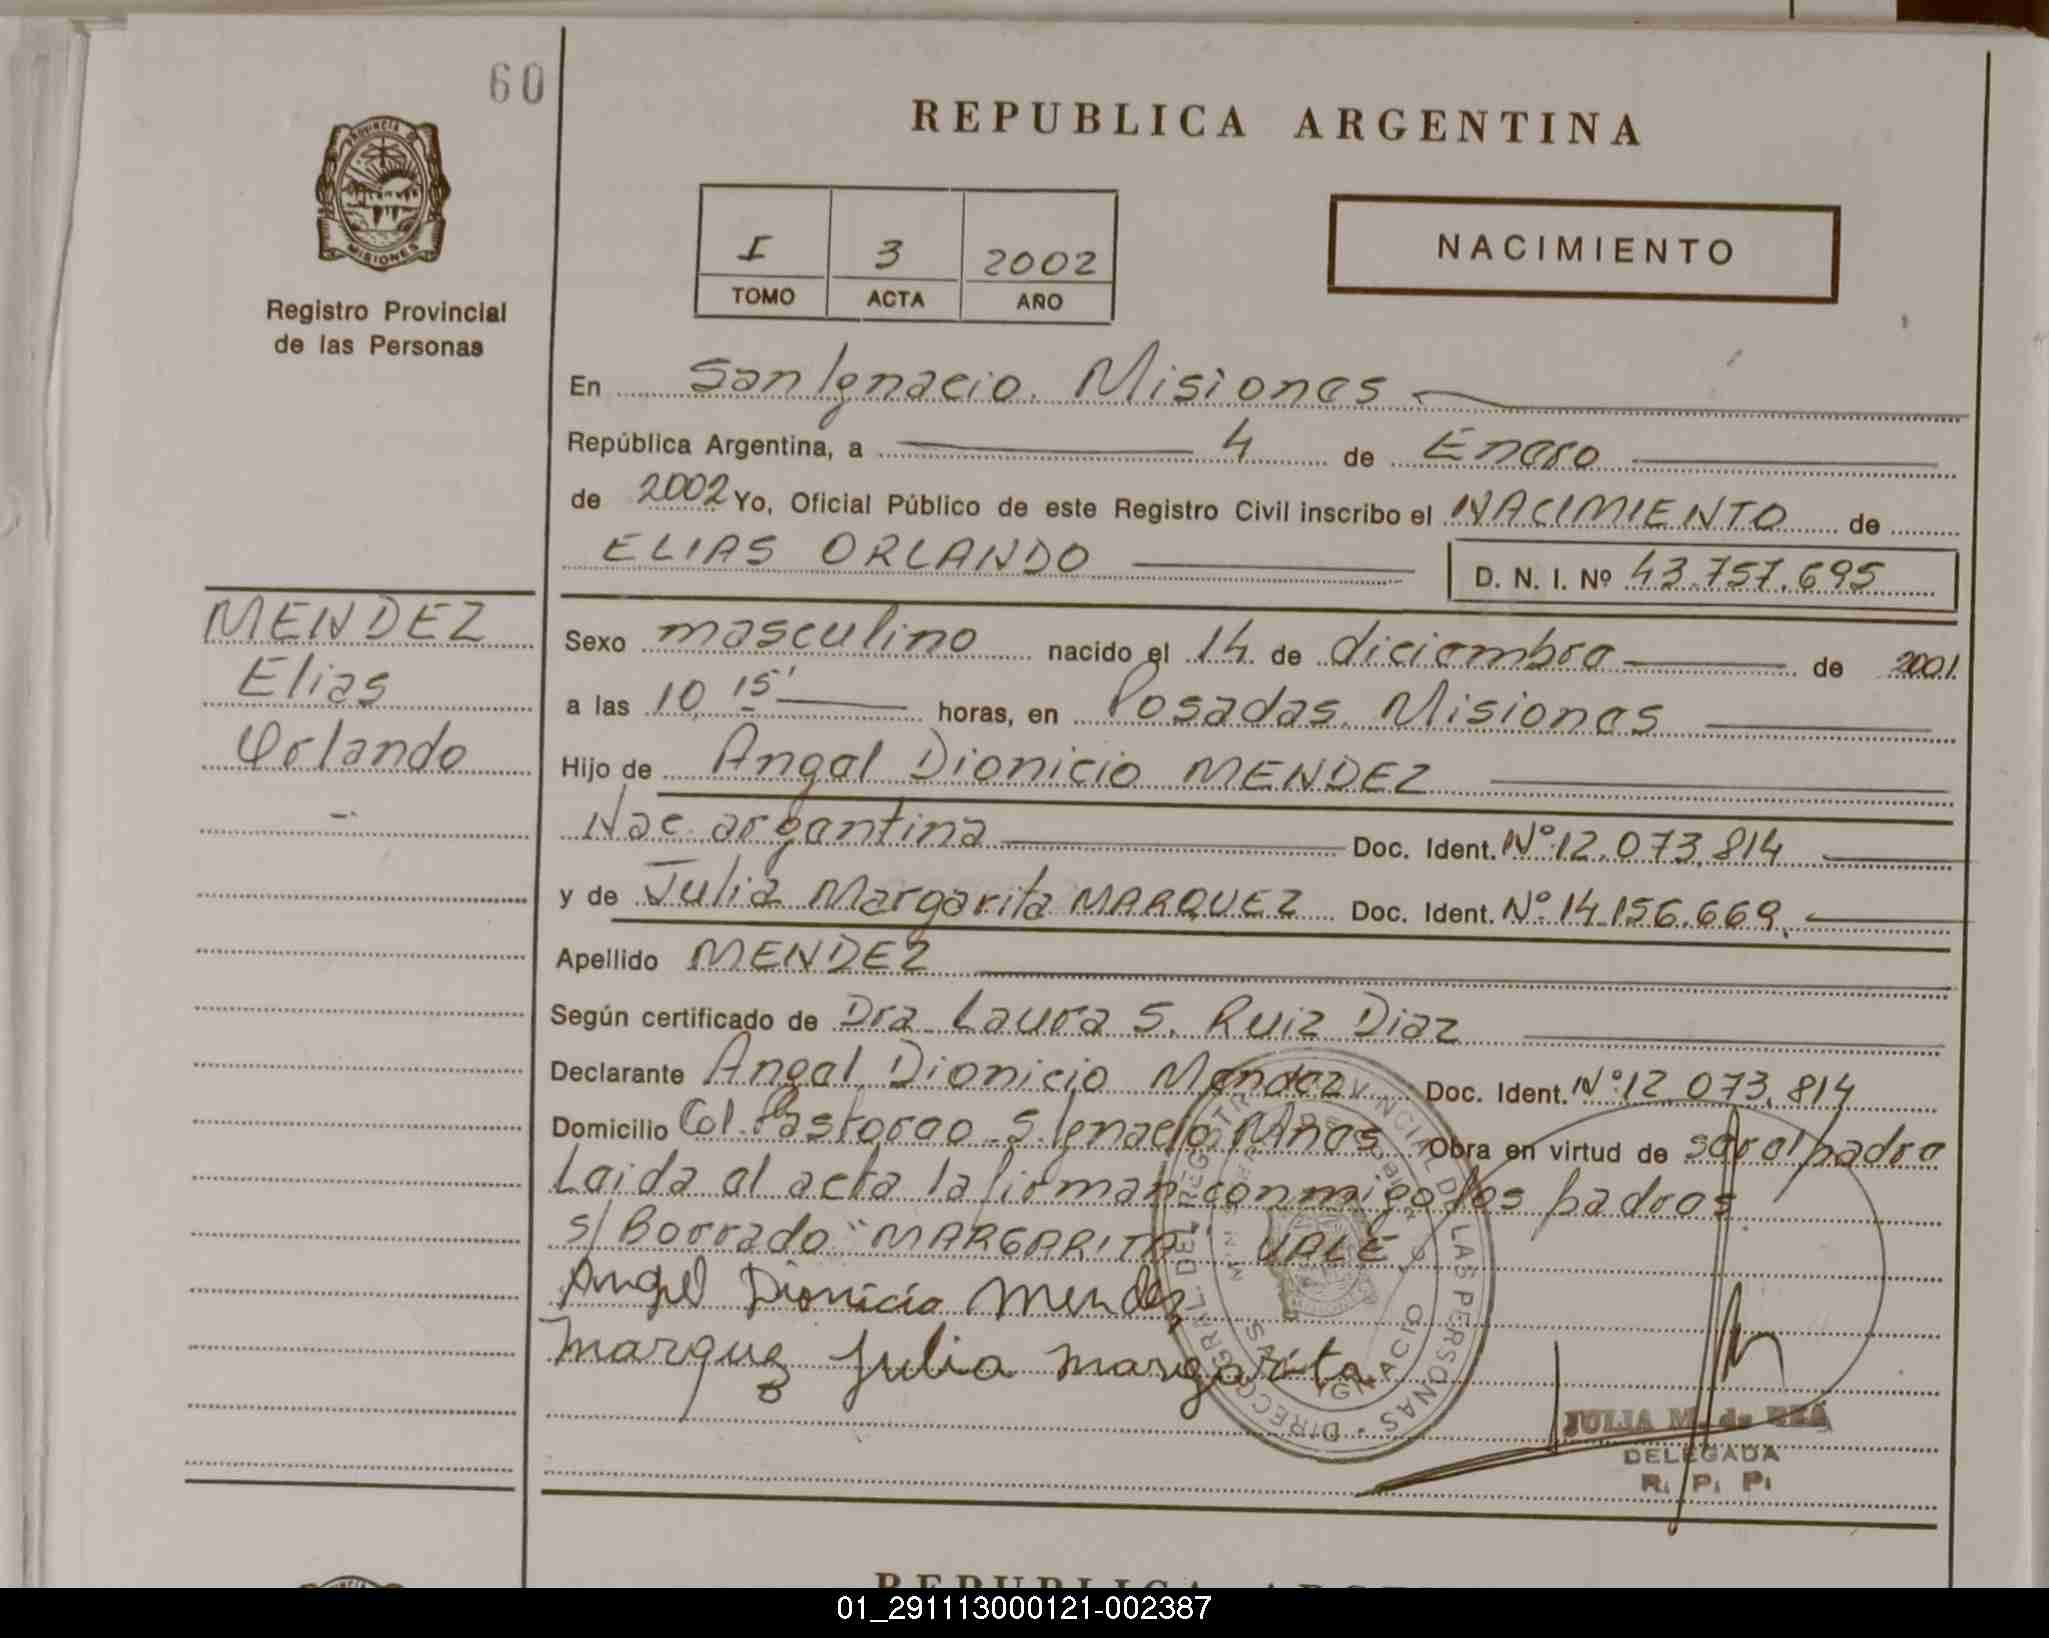 60
REPUBLICA ARGENTINA
PROVINCIA DE
MISIONES
Registro Provincial
de las Personas
I 3 2002
TOMO ACTA AÑO
NACIMIENTO
En San Ignacio. Misiones
República Argentina, a 4 de Enero
de 2002 Yo, Oficial Público de este Registro Civil inscribo el NACIMIENTO de
ELIAS ORLANDO D. N. I. Nº 43.757.695
MENDEZ
Elias
Orlando
Sexo masculino nacido el 14 de diciembre de 2001.
a las 10,15' horas, en Posadas. Misiones
Hijo de Angel Dionicio MENDEZ
Nac. argentina Doc. Ident. Nº 12.073.814
y de Julia Margarita MARQUEZ Doc. Ident. Nº 14.156.669.
Apellido MENDEZ
Según certificado de Dra. Laura S. Ruiz Diaz
Declarante Angel Dionicio Mendez Doc. Ident. Nº 12.073.814
Domicilio Col. Pastoreo S. Ignacio Mnes Obra en virtud de ser el padre
Leida el acta la firman conmigo los padres.
s/ Borrado "MARGARITA" VALE
Angel Dionicio Mendez
Marquez Julia Margarita
DIRECC. GRAL. DEL REGISTRO PROVINCIAL DE LAS PERSONAS
IGNACIO
JULIA M. de REA
DELEGADA
R. P. P.
REPUBLICA ARGE
01_291113000121-002387